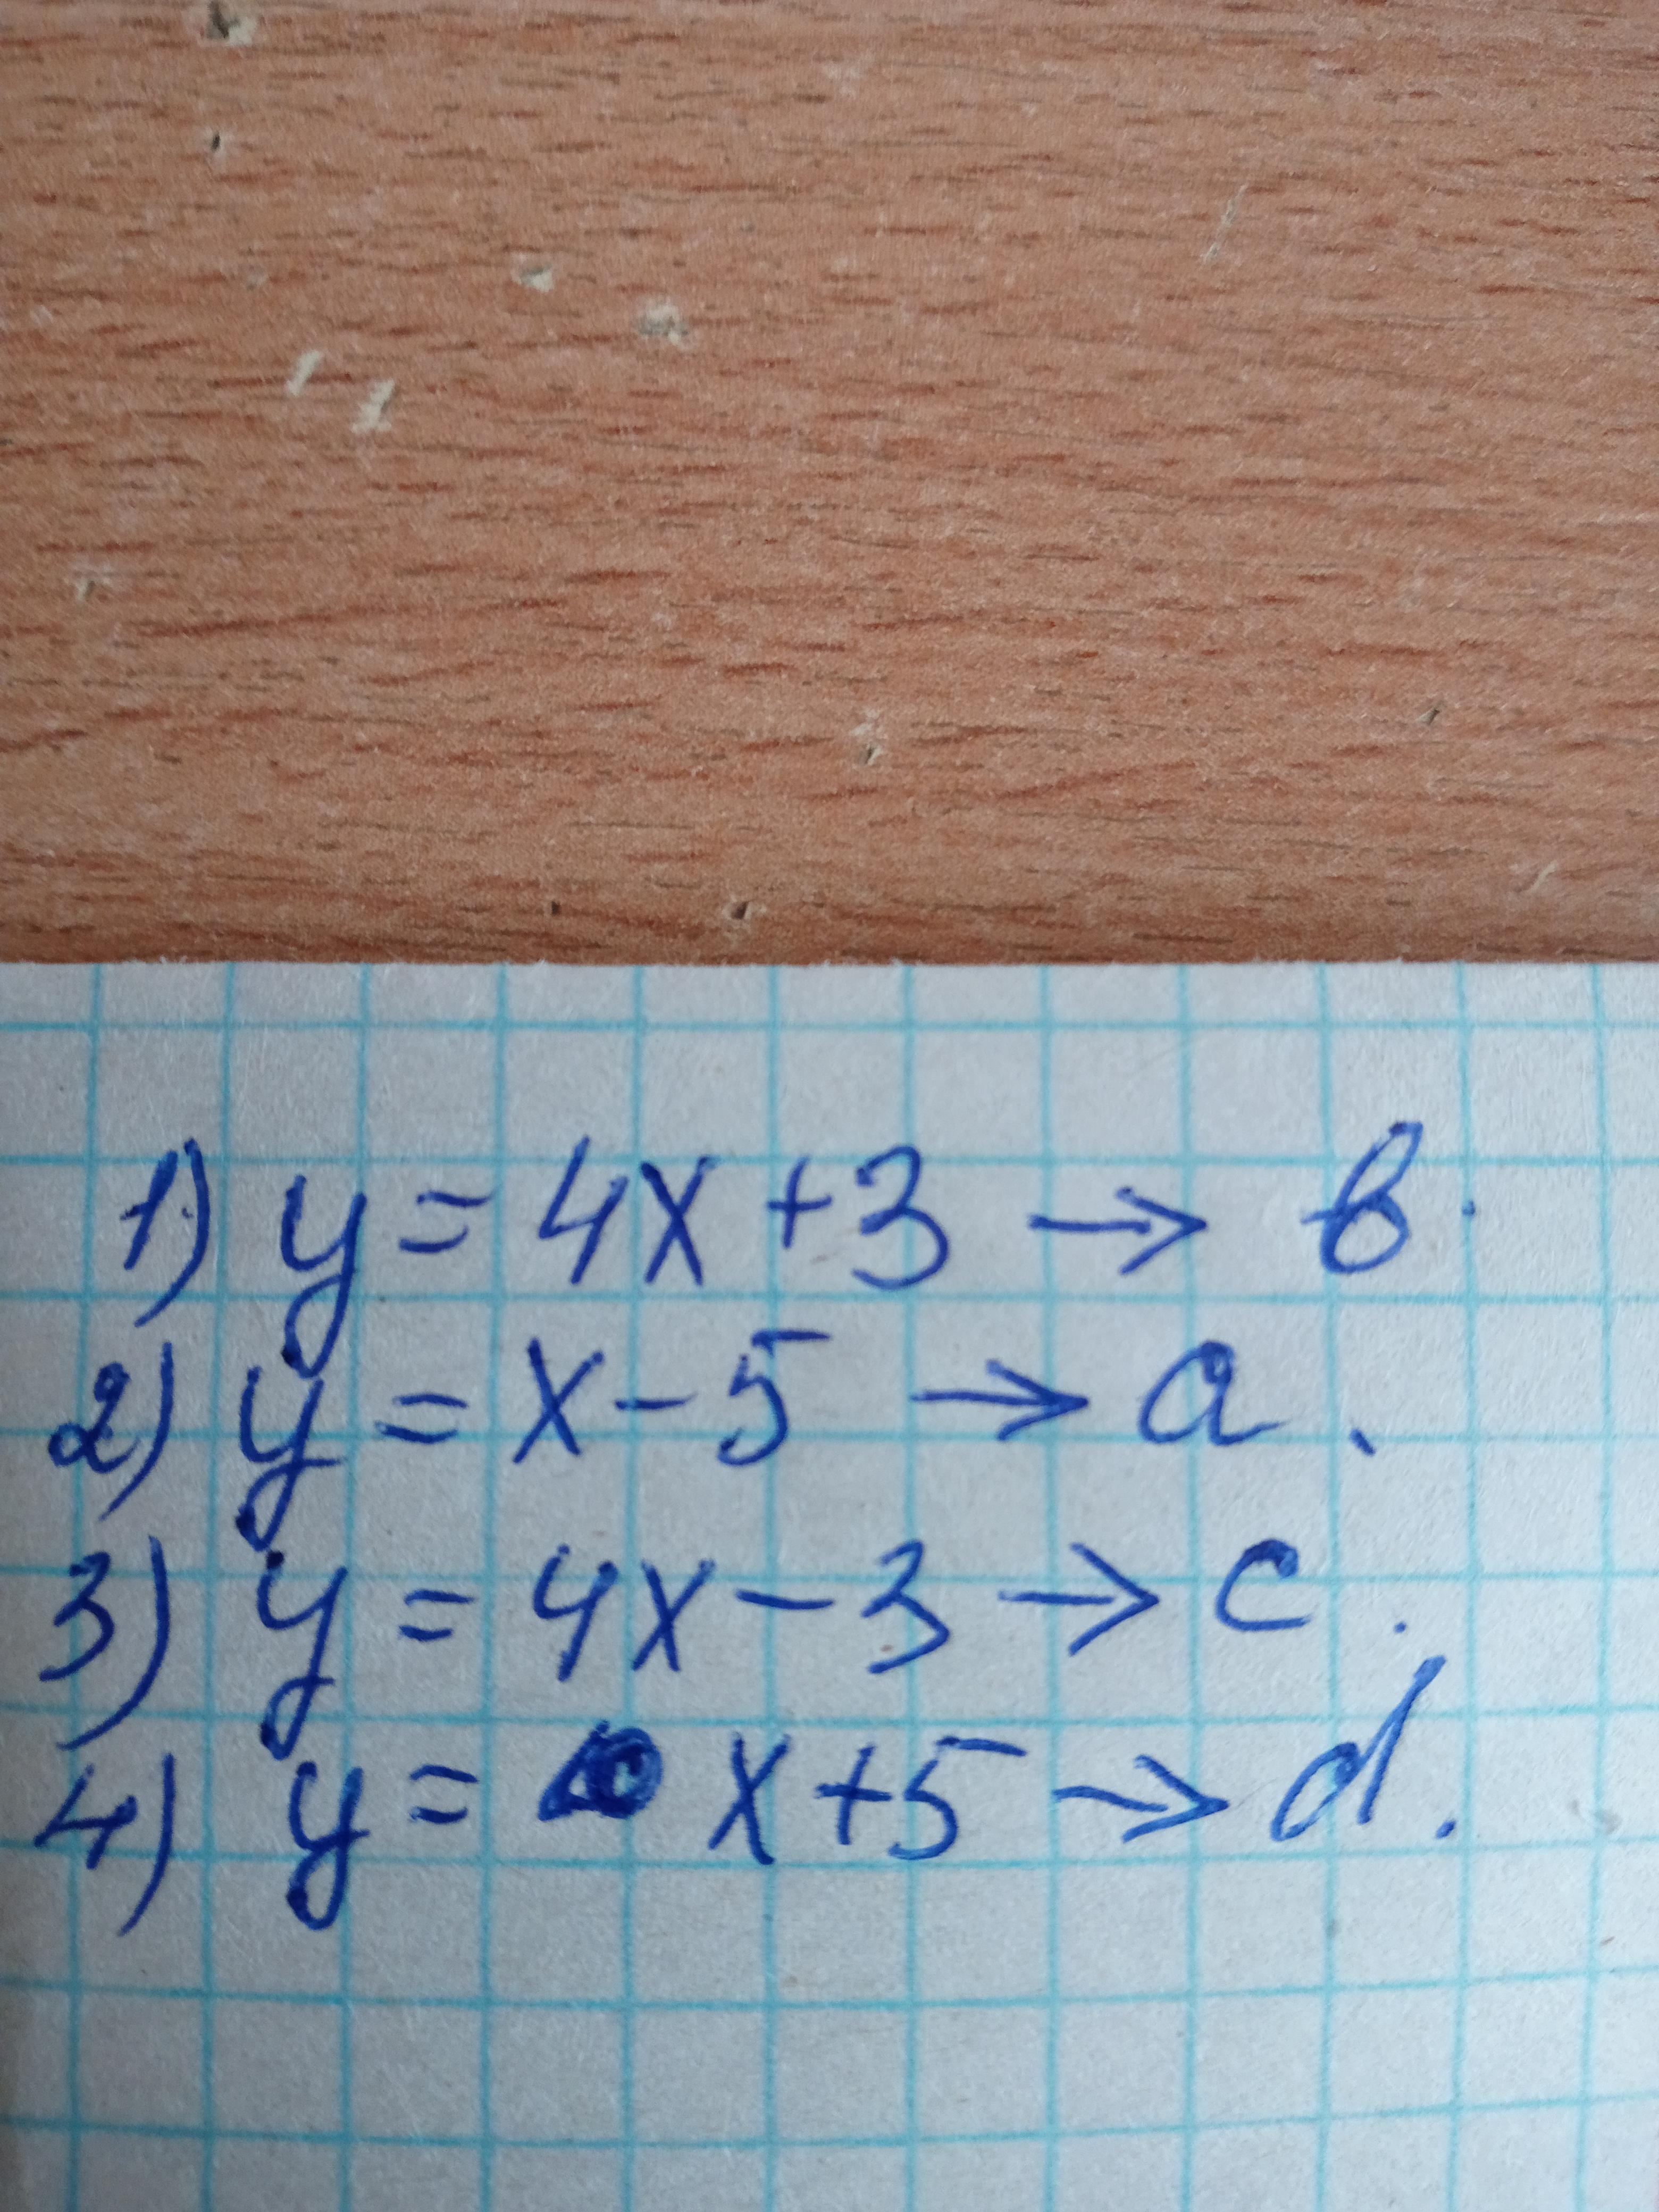 1) y = 4x + 3 → b.
2) y = x - 5 → a.
3) y = 4x - 3 → c.
4) y = x + 5 → d.